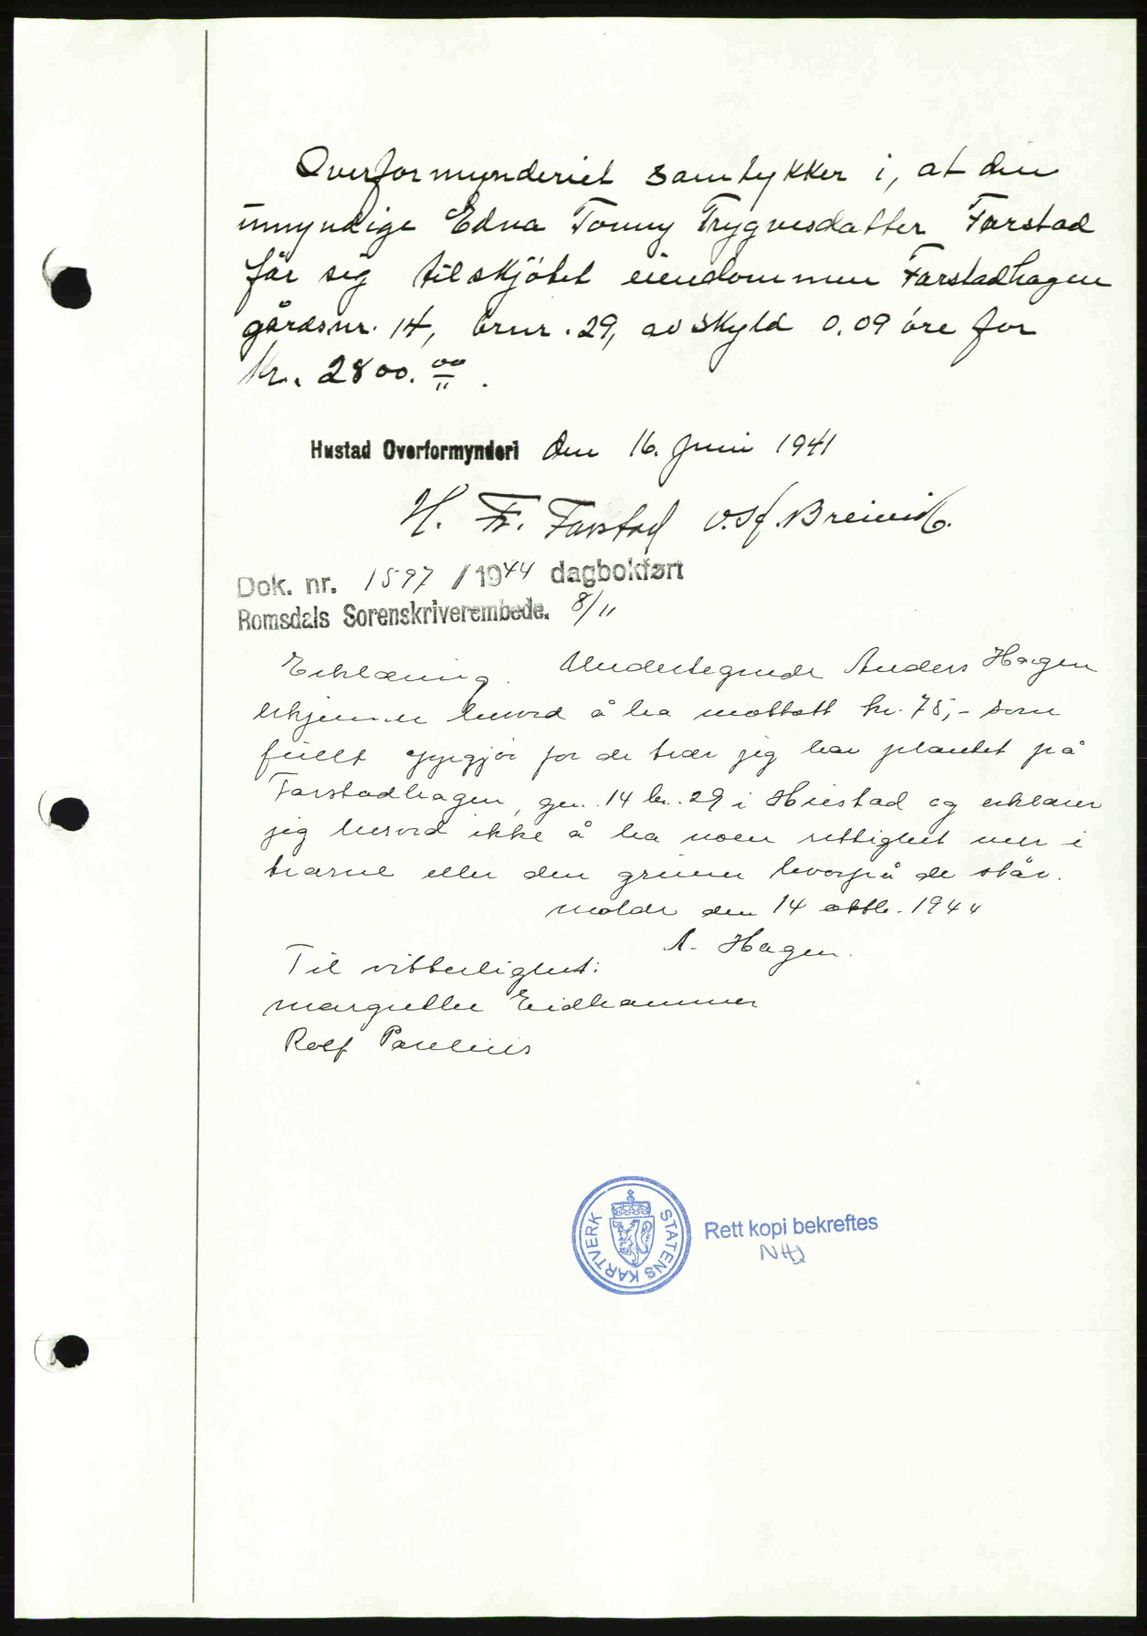 Overformynderiet samtykker i, at den
umyndige Edna Tonny Trygvesdatter Farstad
får sig tilskjötet eiendommen Farstadhagen
gårdsnr. 14, brnr. 29, av skyld 0.09 öre for
kr. 2800.00
Hustad Overformynderi den 16. Juni 1941
H. Fr. Farstad O. Sf. Breivik.
Dok. nr. 1597 /1944 dagbokført
Romsdals Sorenskriverembede. 8/11
Erklæring. Undertegnede Anders Hagen
erkjenner herved å ha mottatt kr. 75,- som
fullt oppgjör for de trær jeg har plantet på
Farstadhagen, gn. 14 br. 29 i Hustad og erklærer
jeg herved ikke å ha noen rettighet mer i
trærne eller den grunn hvorpå de står.
Molde den 14 oktb. 1944
A. Hagen.
Til vitterlighet:
Margrethe Eidhammer
Rolf Paulius
STATENS KARTVERK
Rett kopi bekreftes